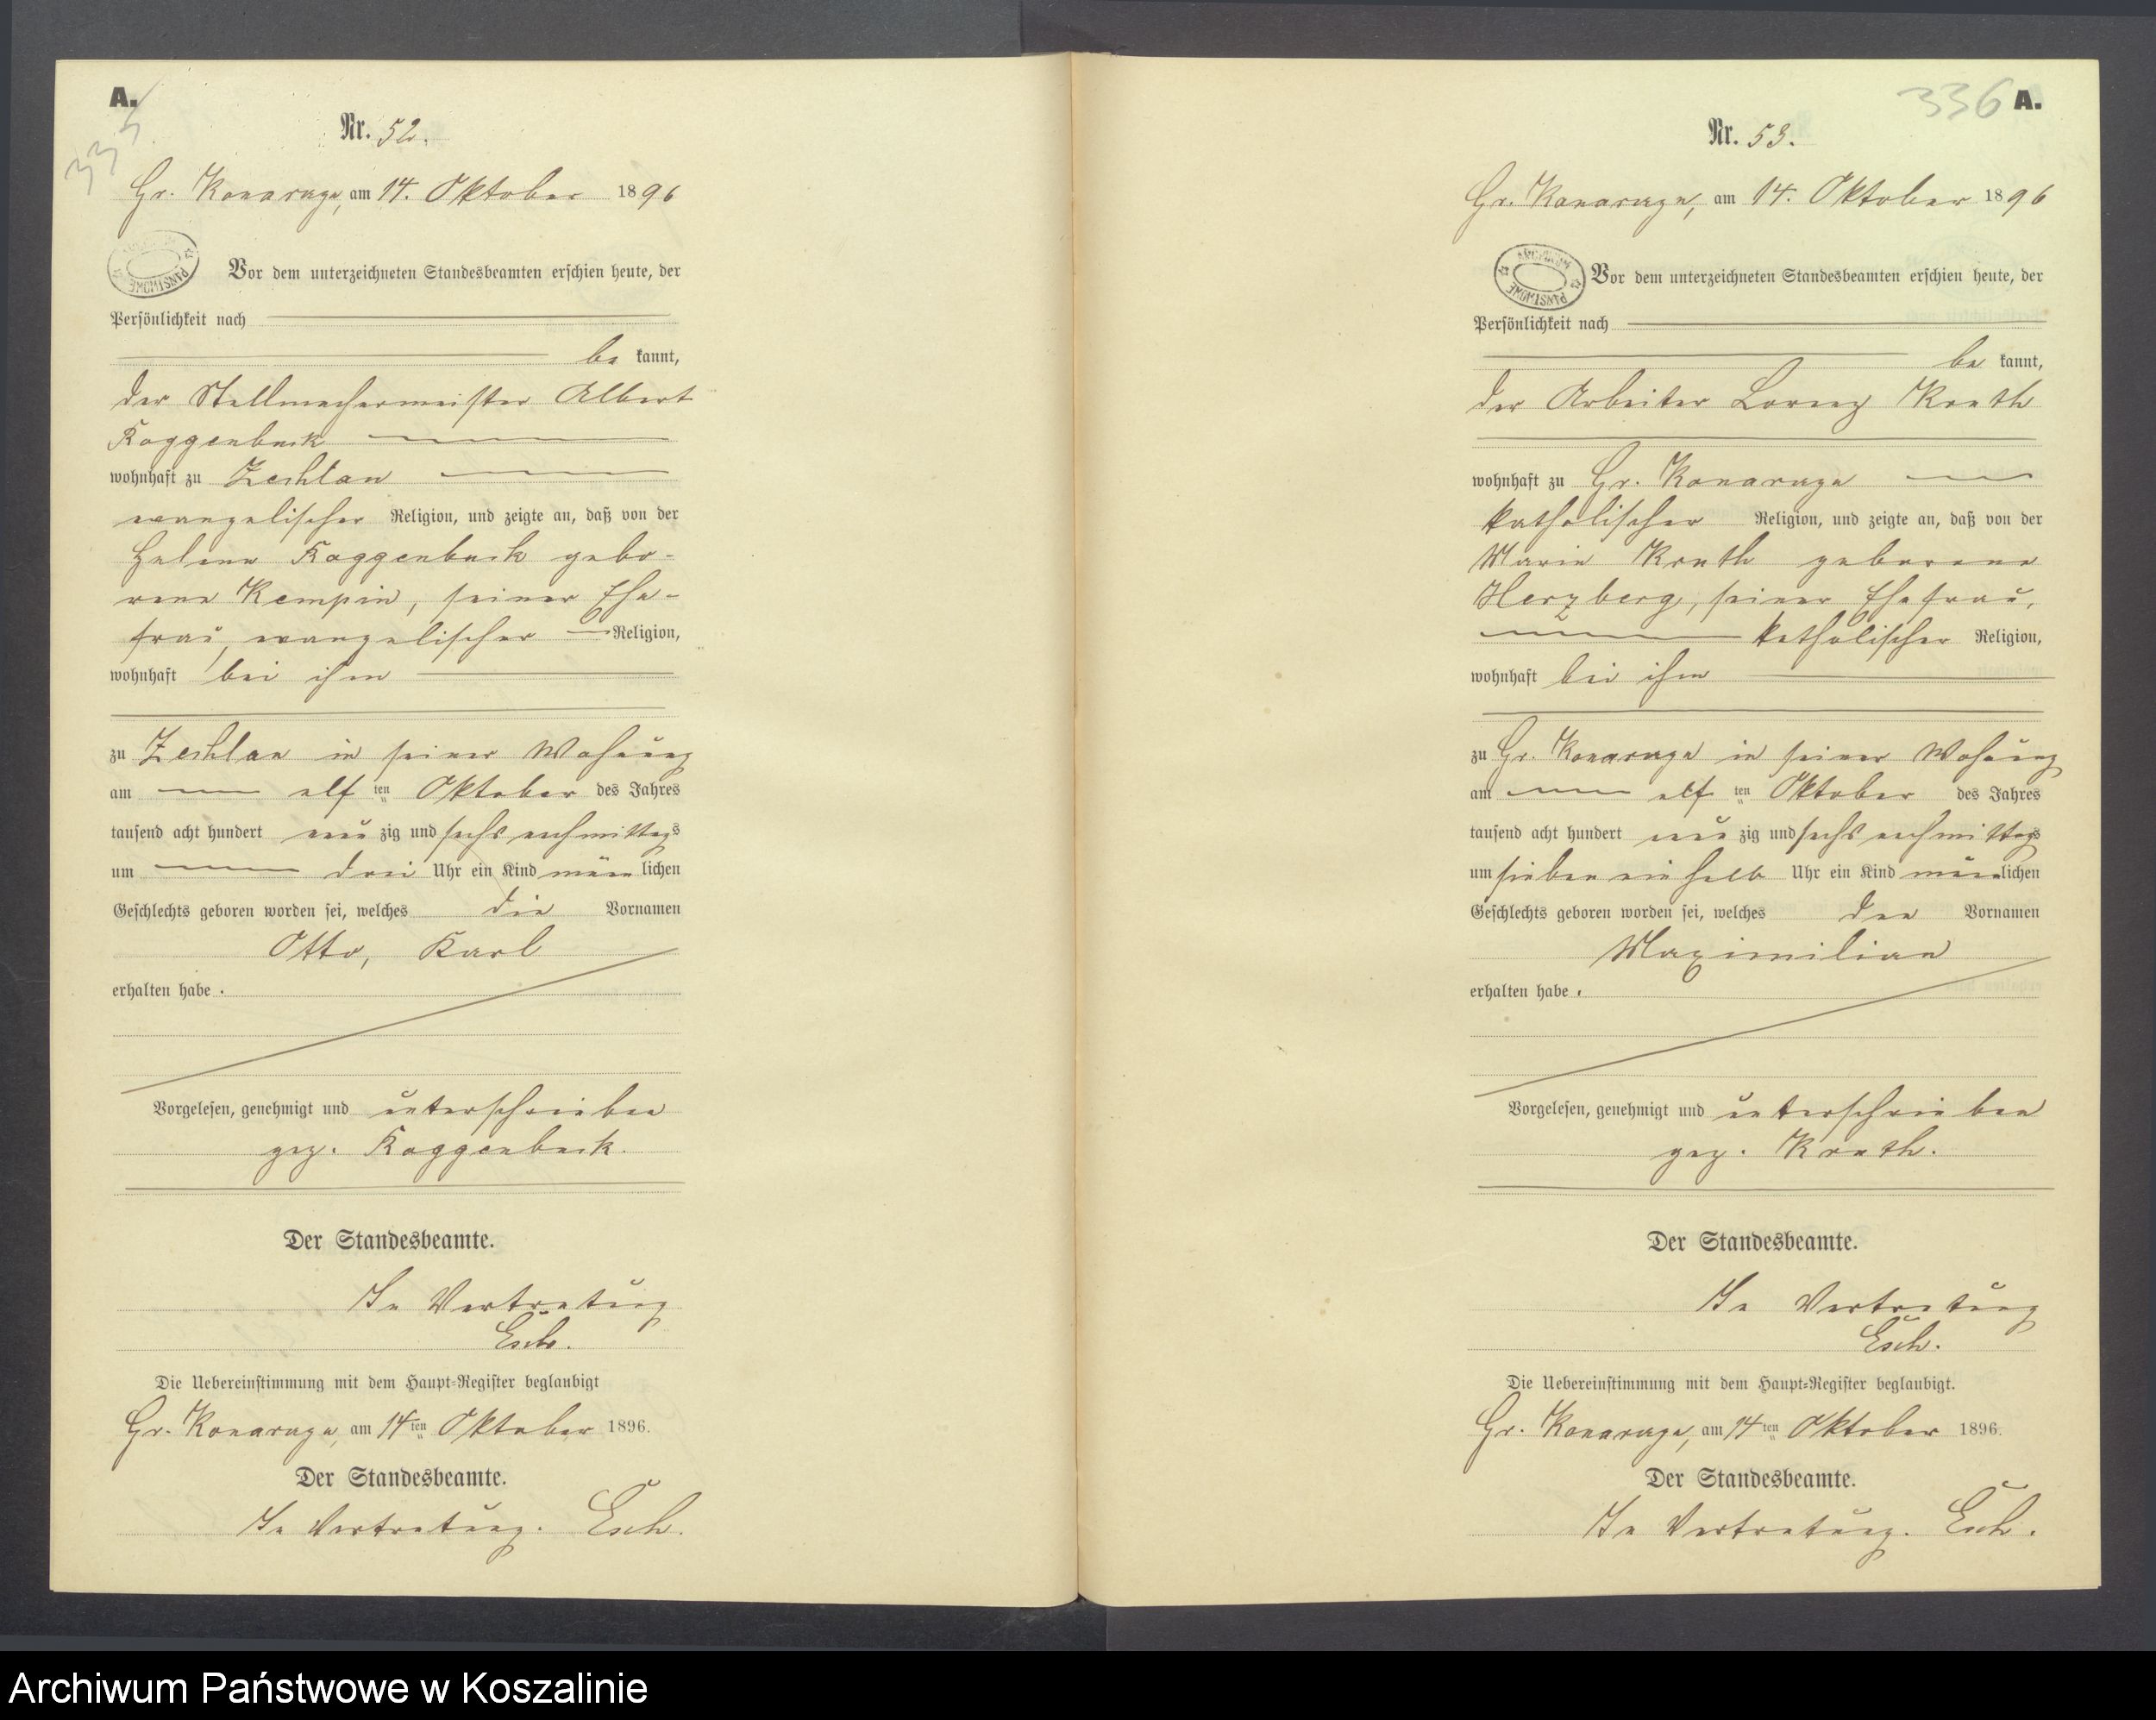 A.
335
Nr. 52.
Gr. Konarczyn, am 14. Oktober 1896
Vor dem unterzeichneten Standesbeamten erschien heute, der
Persönlichkeit nach
be kannt,
der Stellmachermeister Albert
Roggenbuck
wohnhaft zu Zechlau
evangelischer Religion, und zeigte an, daß von der
Helene Roggenbuck gebo-
rene Kempin, seiner Ehe-
frau, evangelischer Religion,
wohnhaft bei ihm
zu Zechlau in seiner Wohnung
am elf ten Oktober des Jahres
tausend acht hundert neun zig und sechs nachmittags
um drei Uhr ein Kind männ lichen
Geschlechts geboren worden sei, welches die Vornamen
Otto, Karl
erhalten habe.
Vorgelesen, genehmigt und unterschrieben
gez. Roggenbuck.
Der Standesbeamte.
In Vertretung
Esch.
Die Uebereinstimmung mit dem Haupt-Register beglaubigt
am 14ten Oktober 1896.
Der Standesbeamte.
In Vertretung. Esch.
336 A.
Nr. 53.
am 14. Oktober 1896
ARCHIWUM PAŃSTWOWE
Vor dem unterzeichneten Standesbeamten erschien heute, der
Persönlichkeit nach
be kannt,
der Arbeiter Lorenz
wohnhaft zu Gr.
katholischer Religion, und zeigte an, daß von der
Marie geborene
Herzberg, seiner Ehefrau,
katholischer Religion,
wohnhaft bei ihm
zu Gr. in seiner Wohnung
am elf ten Oktober des Jahres
tausend acht hundert neun zig und sechs nachmittags
um sieben ein halb Uhr ein Kind männlichen
Geschlechts geboren worden sei, welches den Vornamen
Maximilian
erhalten habe.
Vorgelesen, genehmigt und unterschrieben
gez.
Der Standesbeamte.
In Vertretung
Esch.
Die Uebereinstimmung mit dem Haupt-Register beglaubigt.
am 14ten Oktober 1896.
Der Standesbeamte.
In Vertretung. Esch.
Archiwum Państwowe w Koszalinie